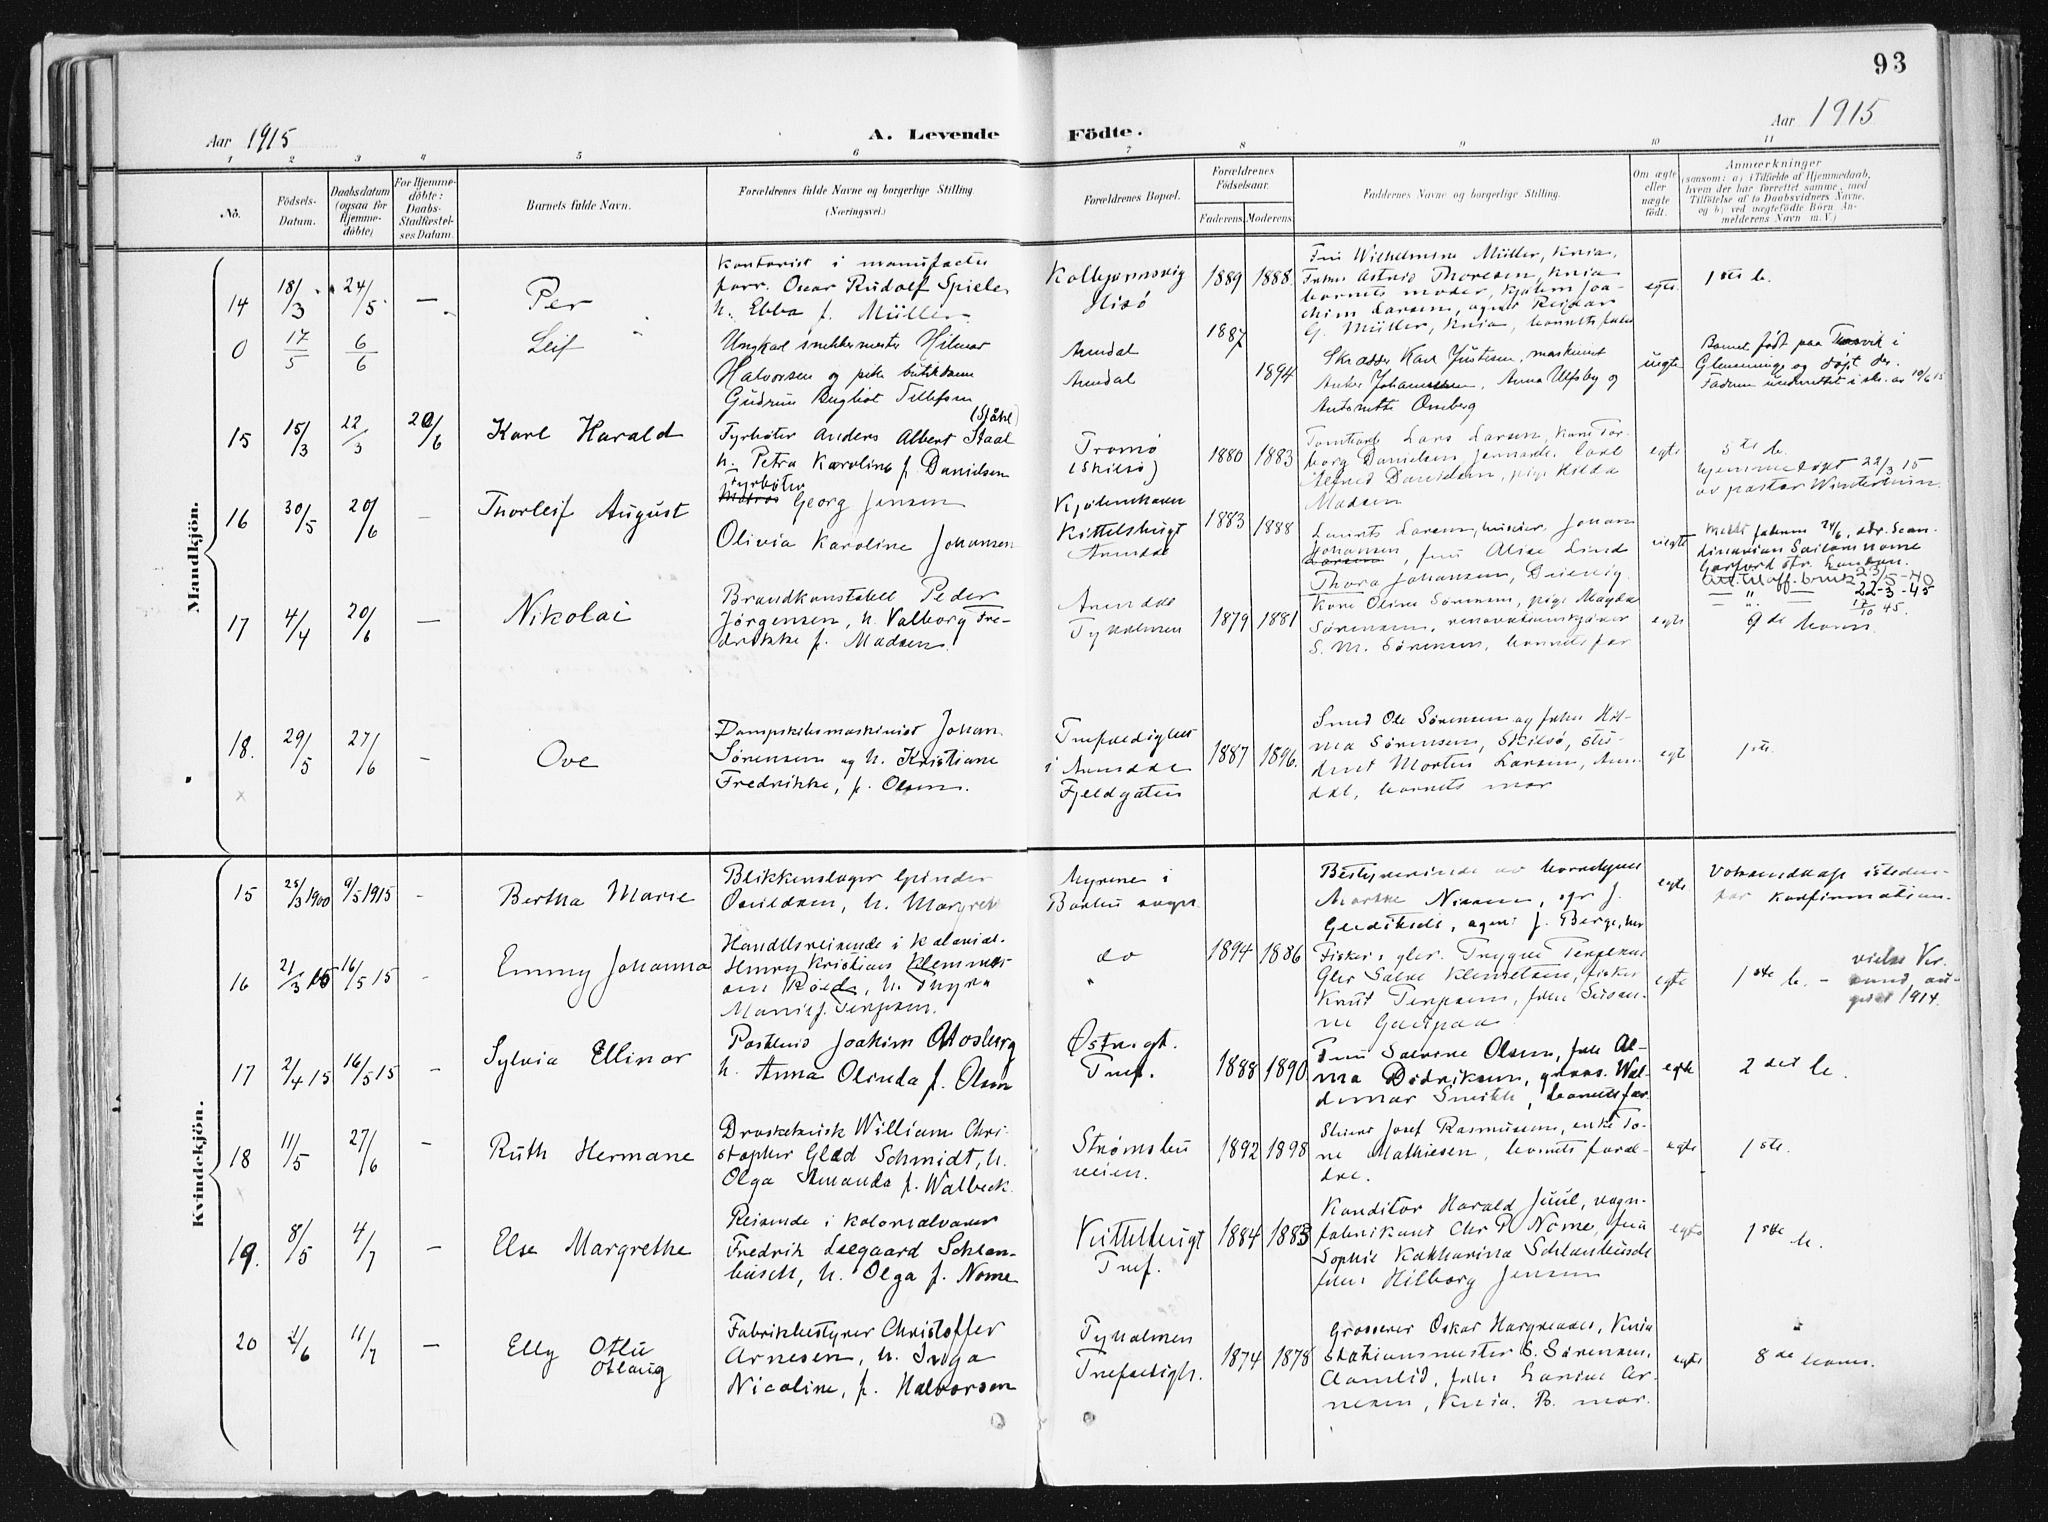 93
Aar 1915
A. Levende Födte.
Aar 1915
1 2 3 4 5 6 7 8 9 10 11
No.
Födsels-Datum.
Daabsdatum (ogsaa for Hjemmedöbte)
For Hjemmedöbte: Daabs-Stadfæstelses Datum.
Barnets fulde Navn.
Forældrenes fulde Navne og borgerlige Stilling. (Næringsvei.)
Forældrenes Bopæl.
Forældrenes Födselsaar.
Faderens. Moderens.
Faddernes Navne og borgerlige Stilling.
Om ægte eller uægte födt.
Anmærkninger
(saasom: a) i Tilfælde af Hjemmedaab, hvem der har forrettet samme, med Tilföielse af to Daabsvidners Navne, og b) ved uægtefödte Börn Anmelderens Navn m. V.)
Mandkjön.
14 18/3 24/5 — Per
Kontorist i manufactur
forr. Oscar Rudolf Spieler
h. Ebba f. Müller
Kolbjørnsvig
Hisö
1889 1888
Fru Wilhelmine Müller, Kria,
Frøken Astrid Thoresen, Kria
barnets moder, Hjalm Joa-
chim Larsen, agent Reidar
G. Müller, Kria, barnets fader
egte 1ste b.
0 17/5 6/6 Leif
Ungkarl snekkermester Hilmar
Halvorsen og pike butikdame
Gudrun Engbiot Tellefsen
Arendal
Arendal
1887 1894
Skræder Karl Justesen, maskinist
Anker Johannessen, Anna Ulfsby og
Antonette Omberg
uegte
Barnet født paa Træsvik i
Glemminge og døpt der.
15 15/3 22/3 20/6 Karl Harald
(Ståhl)
Fyrbøter Anders Albert Staal
h. Petra Karoline f. Danielsen
Tromö
(Skilsö)
1880 1883
Tomtearb Lars Larsen, kone Tor-
borg Danielsen, Carl
Alfred Danielsen, pige Hilda
Madsen
egte 5te b.
hjemmedøpt 22/3 15
av pastor Winterhum
16 30/5 20/6 — Thorleif August
Fyrbøter
Matros Georg Jensen
Olivia Karoline Johansen
Kjøbenhavn
Kittelsbugt
Arendal
1883 1888
Laurits Larsen, murer, Johan
Johansen, fru Alise Lind
Thora Johansen, Drivvig.
uegte
Meldt faderen 24/6, adr. Scan-
dinavian Sailors home
Garford str. London.
22-3-45
17/10 45.
17 4/4 20/6 — Nikolai
Brandkonstabel Peder
Jörgensen, h. Valborg Fre-
drikke f. Madsen.
Arendal
Tyholmen
1879 1881
Kone Oline Sørensen, pige Magda
Sørensen, renovationskjører
S. M. Sørensen, barnets far
egte 9de barn.
18. 29/5 27/6 — Ove
Dampskibsmaskinist Johan
Sørensen og h. Kristiane
Fredrikke, f. Olsen.
Trefoldighet
i Arendal
Fjeldgaten
1887 1896.
Smed Ole Sørensen og frøken Hil-
ma Sørensen, Skilsö, stu-
dent Morten Larsen, Aren-
dal, barnets mor
egt 1ste.
Kvindekjön.
15 25/3 1900 9/5 1915 - Bertha Marie
Blikkenslager Gunder
Osuldsen, h. Margrete
Myrene i
Barbu sogn
Bestyrerinde av barnehjemmet
Marthe Nissen, J.
Gleditsch, agent J. Berge,
egte
Votumdaap isteden-
for konfirmation.
16 21/3 15 16/5 15 - Emmy Johanna
Handelsreisende i kolonial.
Henry Kristians Klemmet-
sen Röed, h. Thyra
Marie f. Terjesen.
do
"
1894 1886
Fisker, gler. Trygve Terjesen
Gler Salve Klemetsen, fisker
Knut Terjesen, frøken Susan-
ne Gaupaa
egte 1ste b. - vielse Ver.
sund au-
gust 1914.
17 2/4 15 16/5 15 - Sylvia Ellinor
Postbud Joakim Mosberg
h. Anna Olinda f. Olsen
Østregt.
Tref.
1888 1890
Fru Salvine Olsen, frk Al-
ma Didriksen, gross. Wal-
demar Smith, barnets far
egte 2det b.
18 11/5 27/6 - Ruth Hermane
Droskekusk William Chri-
stopher Glad Schmidt, h.
Olga Amanda f. Walbeck.
Strømsbu
veien.
1892 1898
Josef Rasmussen, enke To-
ne Mathiesen, barnets foræl-
dre.
egte 1ste.
19. 8/5 4/7 - Else Margrethe
Reisende i kolonialvarer
Fredrik Leegaard Schlan-
busch, h. Olga f. Nome
Kittelsbugt
Tref.
1884 1883
Konditor Harald Juul, vogn-
fabrikant Chr P. Nome, fru
Sophie Katharina Schlanbusch
frøken Hilborg Jensen
egte 1ste b.
20 2/6 11/7 — Elly Otlu
Otlaug
Fabrikbestyrer Christoffer
Arnesen, h. Inga
Nicoline, f. Halvorsen
Tyholmen
Trefoldigh.
1874 1878
Grosserer Oskar Hargreaves, Kria
stationsmester S. Sørensen,
Aamlid, frøken Lanine Ar-
nesen, Kria. B. mor.
egte 8de barn.